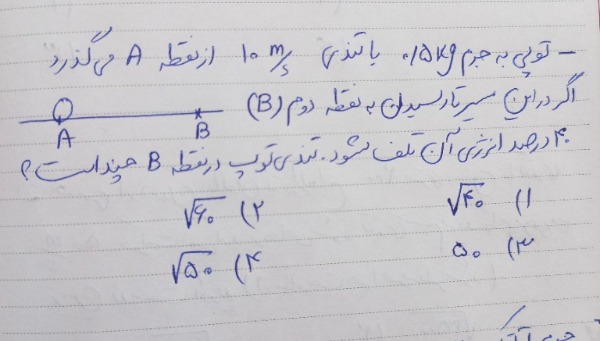 - توپی به جرم ۰/۵kg با تندی ۱۰ m/s از نقطه A می‌گذرد
اگر در این مسیر تا رسیدن به نقطه دوم (B)
A B
۴۰ درصد انرژی آن تلف شود. تندی توپ در نقطه B چند است؟
۱) √۴۰ ۲) √۶۰
۳) ۵۰ ۴) √۵۰